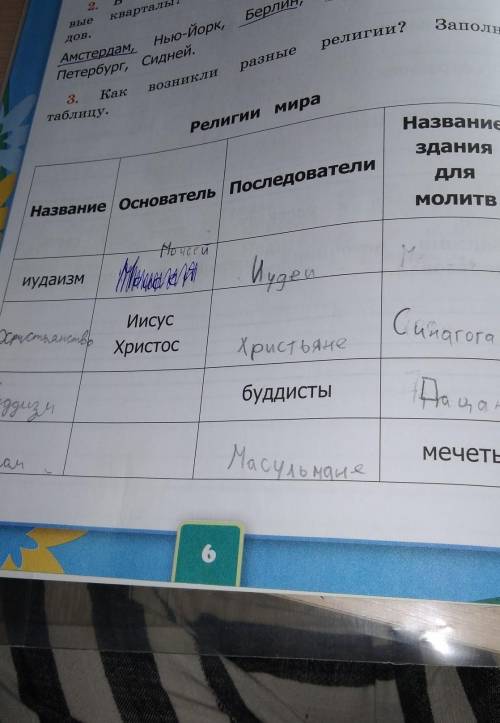 2. В
вые кварталы?
дов.
Амстердам, Нью-Йорк, Берлин,
Петербург, Сидней.
3. Как возникли разные религии? Заполн
таблицу.
Религии мира
Название Основатель Последователи Название здания для молитв
иудаизм Моисей Иудеи
Христьянство Иисус Христос Христьяне Синагога
ддизм буддисты Дацан
лам Масульмане мечеть
6